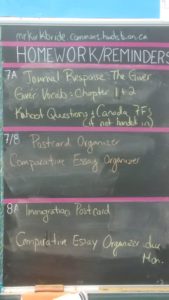 mrkirkbride.commons.hwdsb.on.ca
HOMEWORK/REMINDERS
7A Journal Response - The Giver
Giver Vocab: Chapter 1 + 2
Kahoot Questions (Canada 7F)
(if not handed in)
7/8 Postcard Organizer
Comparative Essay Organizer
8A Immigration Postcard
Comparative Essay Organizer due
Mon.